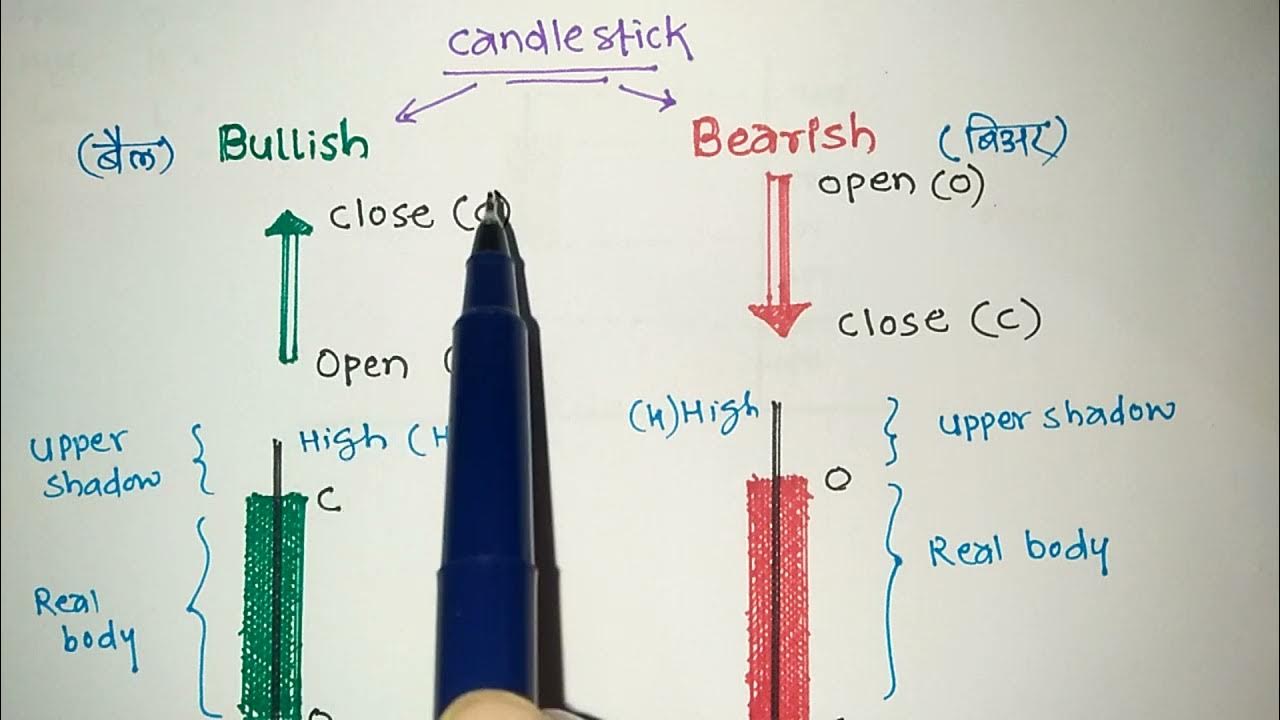 candlestick
(बैल) Bullish
Bearish (बिअर)
close (
open (O)
open (
close (C)
upper
shadow
High (H
C
Real
body
(H) High
upper shadow
O
Real body